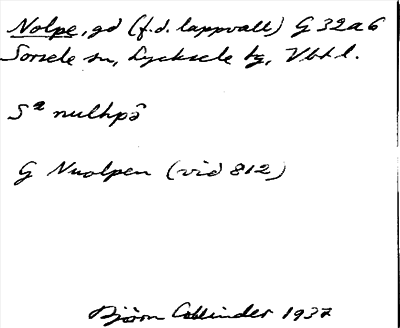 Nolpe, gd (f.d. lappvall) G 32a6
Sorsele sn, Lycksele hg, Vbtl.
Sᵃ nulhpē
G Nuolpen (vid 812)
Björn Collinder 1937